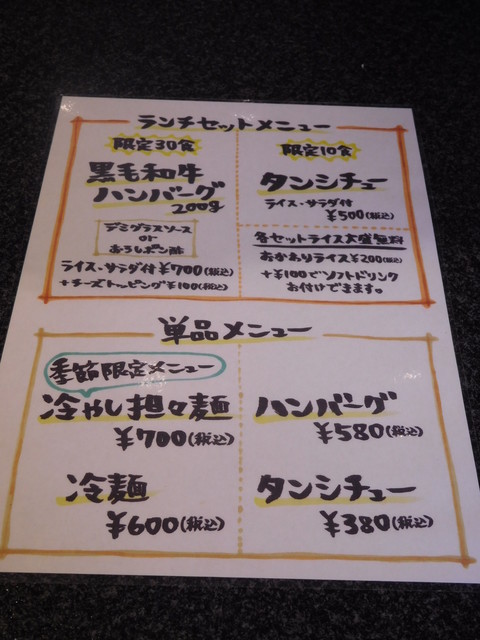 ランチセットメニュー
限定30食
黒毛和牛
ハンバーグ
200g
デミグラスソース
or
おろしポン酢
ライス・サラダ付￥700(税込)
+チーズトッピング￥100(税込)
限定10食
タンシチュー
ライス・サラダ付
￥500(税込)
各セットライス大盛無料
おかわりライス￥200(税込)
+￥100でソフトドリンク
お付けできます。
単品メニュー
季節限定メニュー
冷やし担々麺
￥700(税込)
冷麺
￥600(税込)
ハンバーグ
￥580(税込)
タンシチュー
￥380(税込)